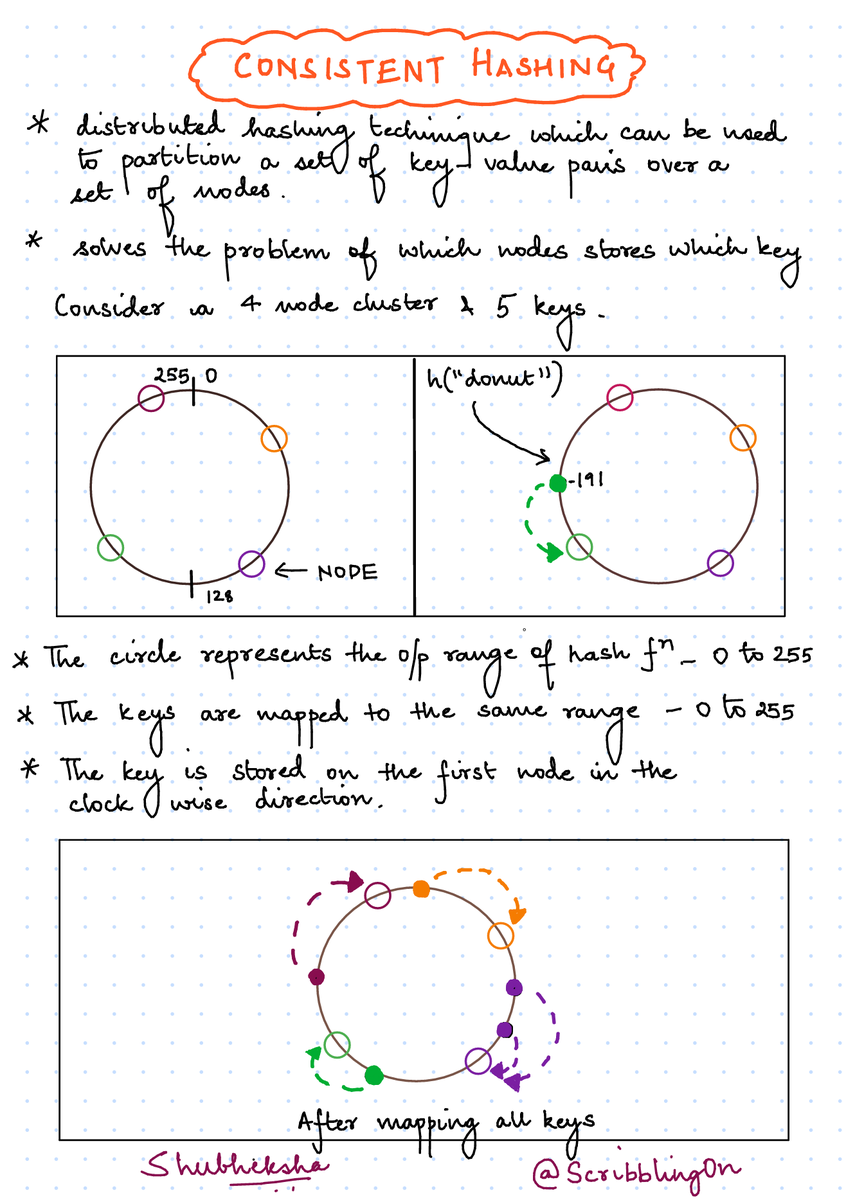 CONSISTENT HASHING
* distributed hashing techinique which can be used
to partition a set of key-value pairs over a
set of nodes.
* solves the problem of which nodes stores which key
Consider a 4 node cluster & 5 keys.
255 0
← NODE
128
h("donut")
-191
* The circle represents the o/p range of hash fⁿ - 0 to 255
* The keys are mapped to the same range - 0 to 255
* The key is stored on the first node in the
clock wise direction.
After mapping all keys
Shubheksha
@ScribblingOn